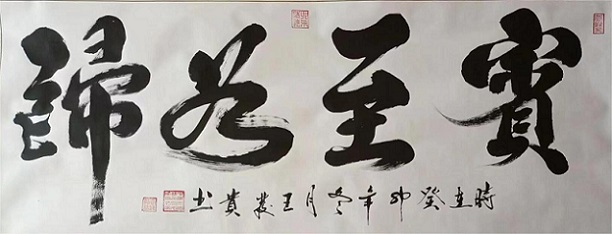 賓至如歸
時在癸卯年冬月王發貴書